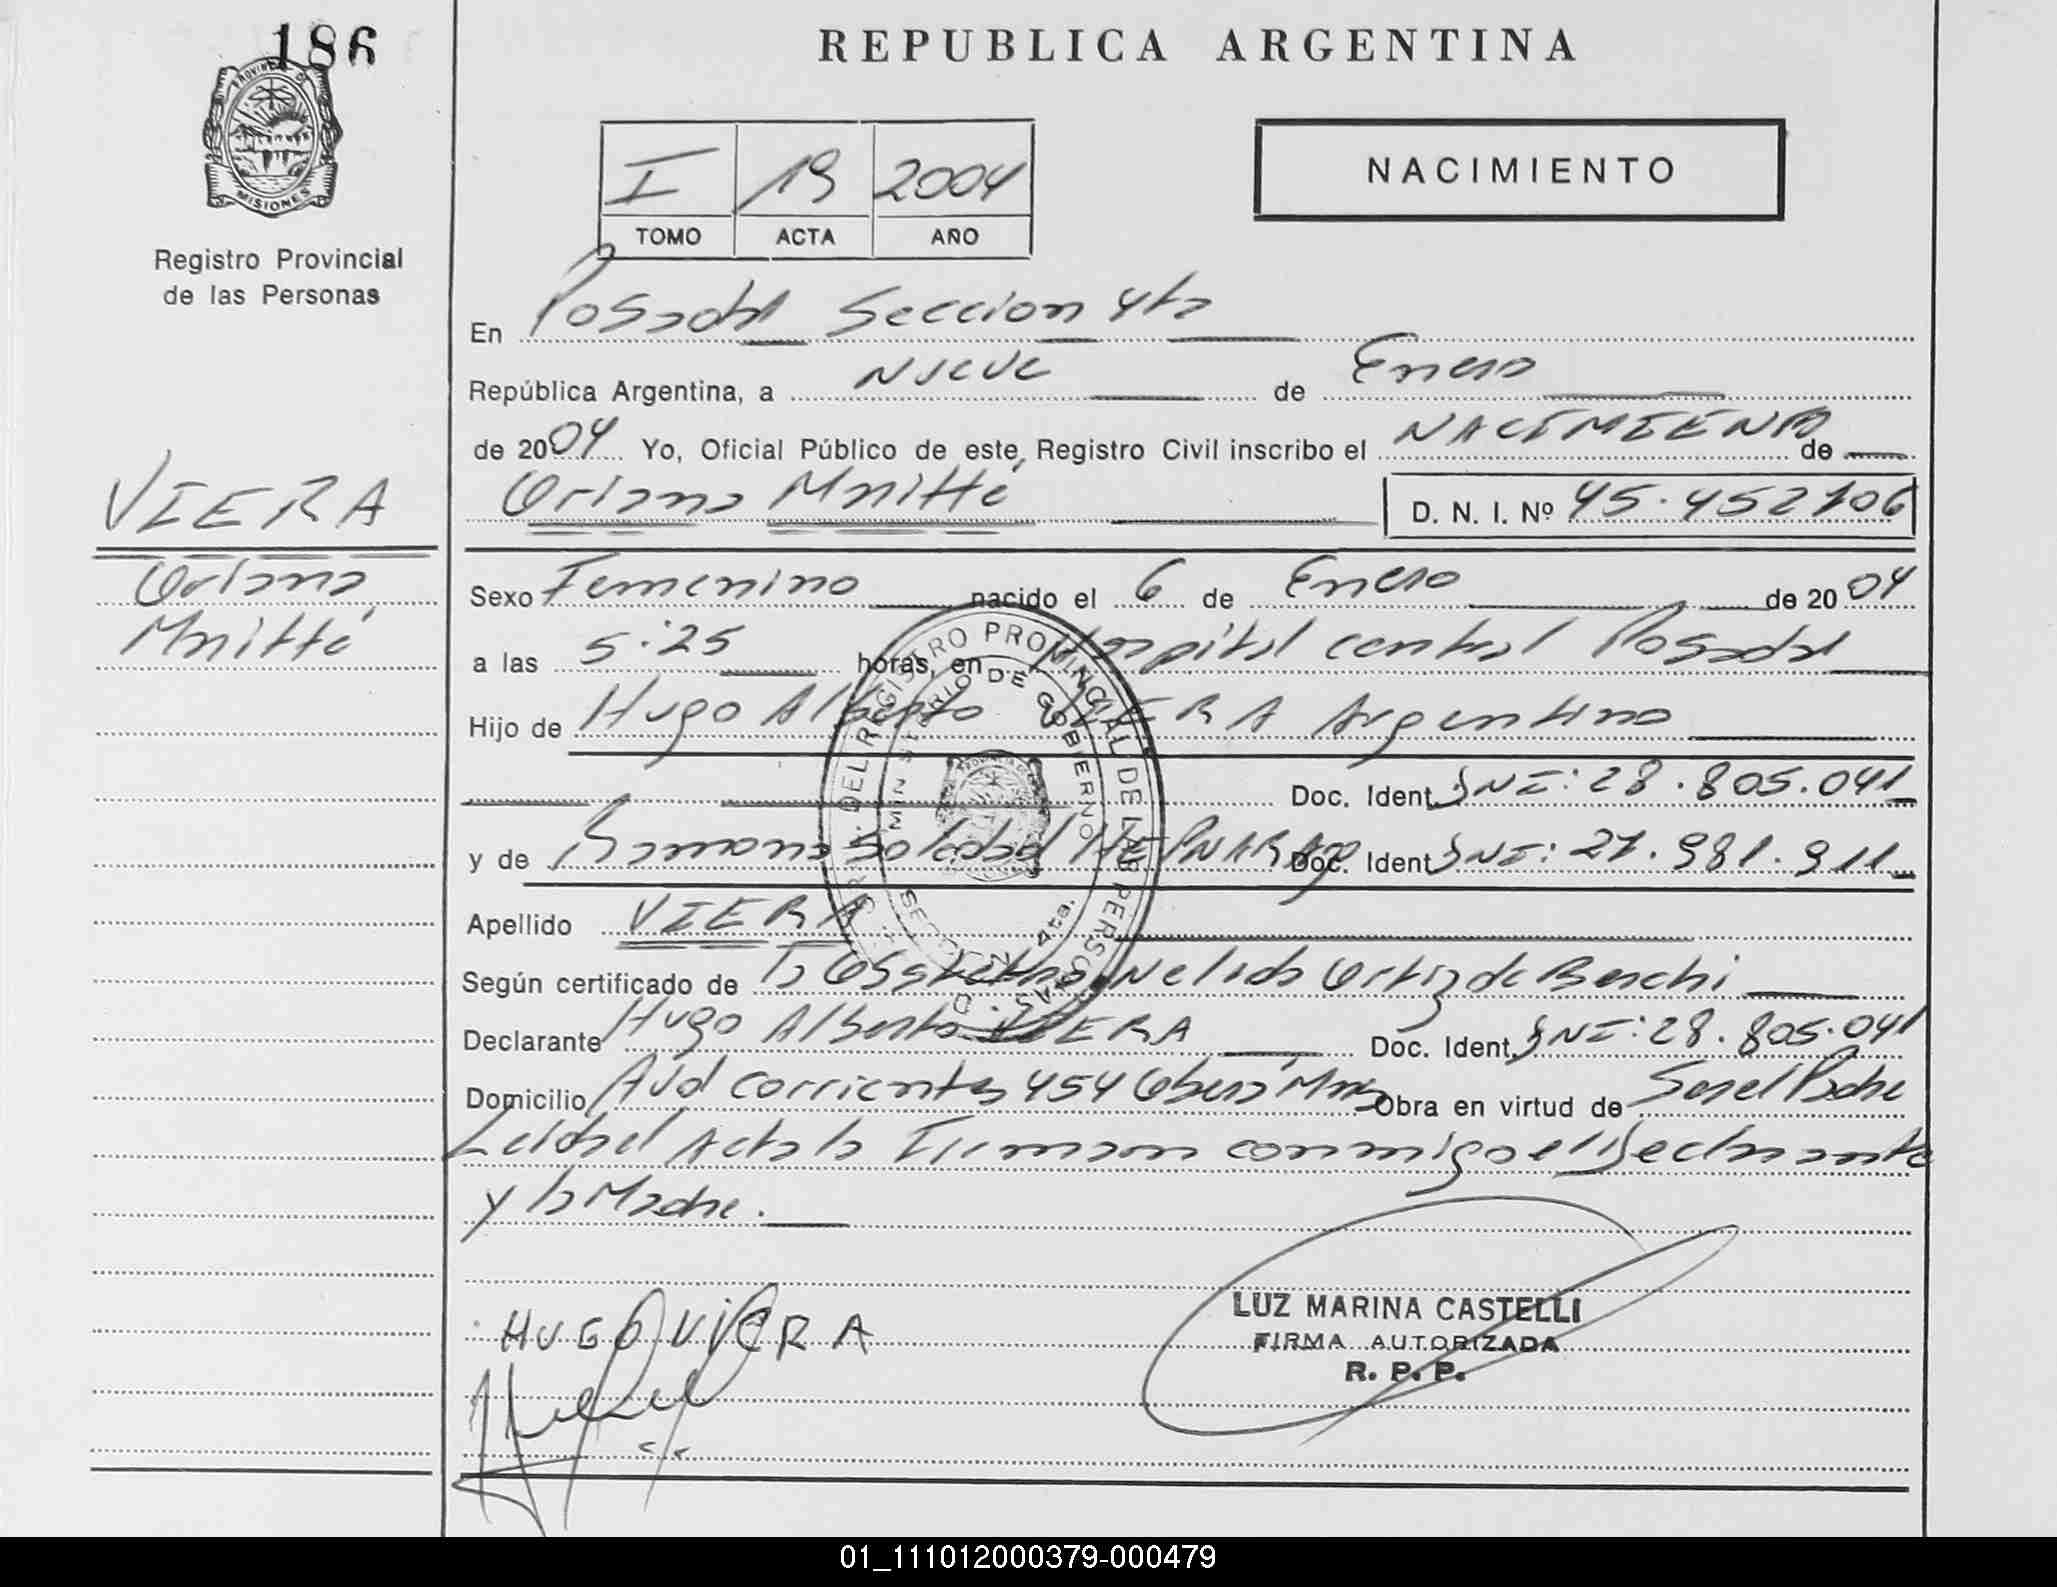 186
REPUBLICA ARGENTINA
PROVINCIA DE
MISIONES
Registro Provincial
de las Personas
I 19 2004
TOMO ACTA AÑO
NACIMIENTO
En Posadas Seccion 4ta
República Argentina, a Nueve de Enero
de 2004 Yo, Oficial Público de este Registro Civil inscribo el NACIMIENTO de
Oriana D. N. I. Nº 45.452106
VIERA
Oriana
Sexo Femenino nacido el 6 de Enero de 2004
a las 5:25 horas, en Hospital central Posadas
Hijo de Hugo Alberto VIERA Argentino
Doc. Ident. DNI: 28.805.041
y de Ramona Soledad Doc. Ident. DNI: 27.981.911
Apellido VIERA
Según certificado de la Obstetra Nelida Ortiz de
Declarante Hugo Alberto VIERA Doc. Ident. DNI: 28.805.041
Domicilio Avd Corrientes 454 Oberá Mnes Obra en virtud de Ser el Padre
Leida el Acta la Firman conmigo el Declarante
y la Madre.
REGISTRO PROVINCIAL DE LAS PERSONAS
MINISTERIO DE GOBIERNO
SECCION 4ta.
HUGO VIERA
LUZ MARINA CASTELLI
FIRMA AUTORIZADA
R. P. P.
01_111012000379-000479